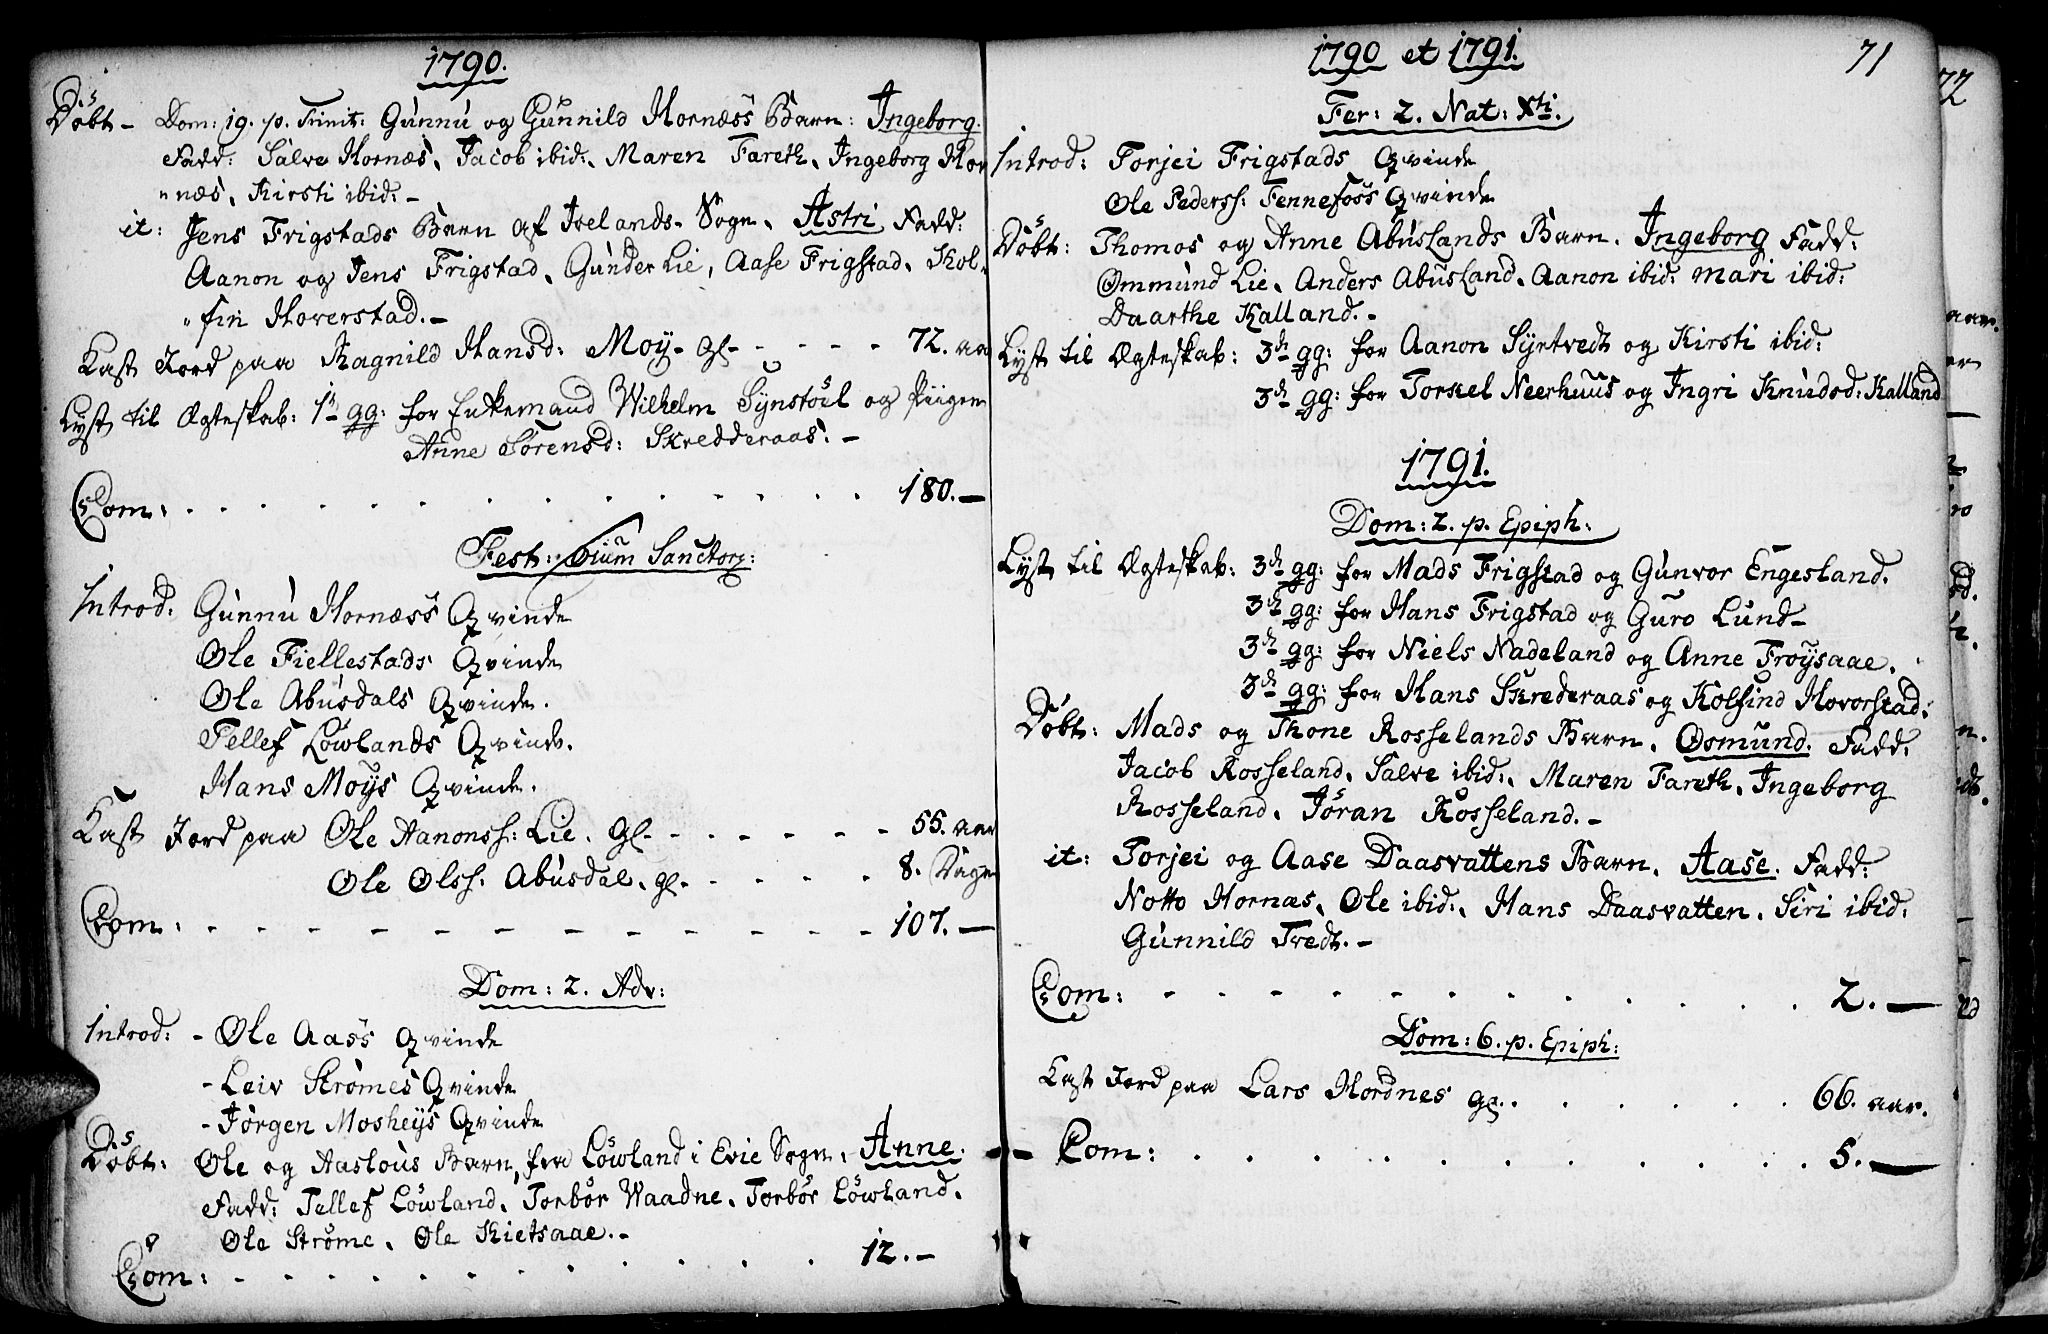 1790.
Döbt - Dom: 19. p. Trinit: Gunnu og Gunnild Hornæss Barn: Ingeborg.
Fadd: Salve Hornæs, Jacob ibid:, Maren Fareth, Ingeborg Hor
"næs, Kirsti ibid: -
it: Jens Frigstads Barn af Ivelands-Sogn, Astri Fadd:
Aanon og Jens Frigstad, Gunder Lie, Aase Frigstad, Kol-
"fin Hoverstad. -
Kast Jord paa Ragnild Hansd: Moy - gl - - - - - 72. aar
Lyst til Ægteskab: 1te gg: for Enkemand Wilhelm Synstöul og Piigen
Anne Sörensd: Skredderaas. -
Com: . . . . . . . . . . . . 180. -
Fest: Oium Sanctor:
Introd: Gunnu Hornæss Qvinde
Ole Fiellestads Qvinde
Ole Abusdals Qvinde.
Tellef Löwlands Qvinde.
Hans Moys Qvinde.
Kast Jord paa Ole Aanonss: Lie. gl - - - - - - 55. aar
Ole Olss. Abusdal. gl. - . . . . 8. Dage
Com: - - - - - - - - - - - - 107. -
Dom: 2. Adv:
Introd: - Ole Aass Qvinde
- Leiv Strömes Qvinde
- Jörgen Mosheys Qvinde
Döbt: Ole og Aaslous Barn, fra Löwland i Evie Sogn, Anne.
Fadd: Tellef Löwland, Torbör Waadne, Torbör Löwland,
Ole Ströme, Ole Kietsaae. -
Com: - . . . . . . . . . . 12. -
1790 et 1791. 71
Fer: 2. Nat: Xti.
Introd: Torjei Frigstads Qvinde
Ole Pederss: Fennefoss Qvinde
Döbt: Thomos og Anne Abuslands Barn. Ingeborg Fadd:
Ommund Lie, Anders Abusland, Aanon ibid: Mari ibid:
Daarthe Kalland. -
Lyst til Ægteskab: 3de gg: for Aanon Syrtvedt og Kirsti ibid:
3de gg: for Torkel Neerhuus og Ingri Knudsd: Kalland
1791.
Dom: 2. p. Epiph:
Lyst til Ægteskab: 3de gg: for Mads Frigstad og Gunvor Engesland.
3de gg: for Hans Frigstad og Guro Lund -
3de gg: for Niels Nadeland og Anne Fröysaae.
3de gg: for Hans Skrederaas og Kolfind Hovorstad.
Döbt: Mads og Thone Rosselands Barn. Osmund. Fadd:
Jacob Rosseland, Salve ibid:, Maren Fareth, Ingeborg
Rosseland, Jöran Rosseland. -
it: Torjei og Aase Daasvattens Barn. Aase. Fadd:
Notto Hornas, Ole ibid:, Hans Daasvatten, Siri ibid:
Gunnild Tredt. -
Com: - - - - - - - . . . . 2. -
Dom: 6. p. Epiph:
Kast Jord paa Lars Hordnes gl. . . . . . . 66. aar.
Com: . . . . . . . . . . . 5. -
72